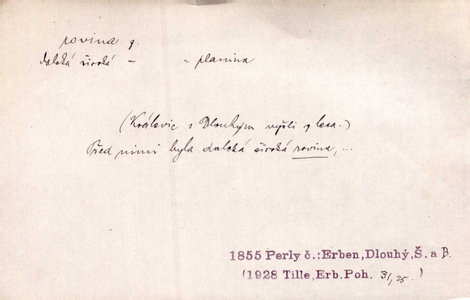 rovina f.
daleká široká – – planina
(Králevic s Dlouhým vyšli z lesa.)
Před nimi byla daleká široká rovina, ...
1855 Perly č.:Erben,Dlouhý,Š.aB.
(1928 Tille,Erb.Poh. 31,25.)